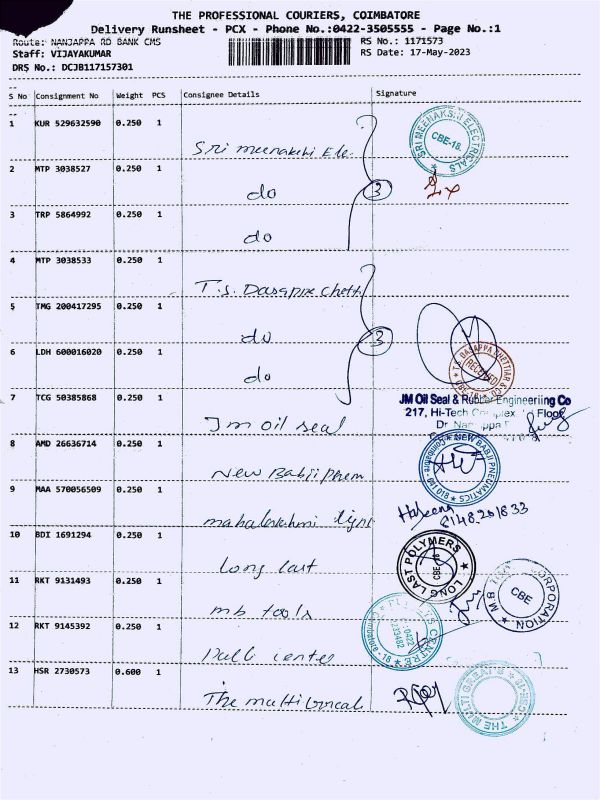 THE PROFESSIONAL COURIERS, COIMBATORE
Delivery Runsheet - PCX - Phone No.:0422-3505555 - Page No.:1
Route: NANJAPPA RD BANK CMS
RS No.: 1171573
Staff: VIJAYAKUMAR
RS Date: 17-May-2023
DRS No.: DCJB117157301
S No Consignment No Weight PCS Consignee Details Signature
1 KUR 529632590 0.250 1
Sri meenakshi Ele.
SRI MEENAKSHI ELECTRICALS
CBE-18.
2 MTP 3038527 0.250 1
do
3
3 TRP 5864992 0.250 1
do
4 MTP 3038533 0.250 1
T.S. Dasappa Chetti
5 TMG 200417295 0.250 1
do
3
6 LDH 600016020 0.250 1
do
T.S. DASAPPA CHETTIAR & CO
RECEIVED
CBE-18
7 TCG 50385868 0.250 1
Jm oil seal
JM Oil Seal & Rubber Engineering Co
217, Hi-Tech Complex Floor
8 AMD 26636714 0.250 1
New Babji pnem
NEW BABJI PNEUMATICS
Coimbatore - 641 018
9 MAA 570056509 0.250 1
mahalakshmi light
Haseena
8148201833
10 BDI 1691294 0.250 1
Long last
LONG LAST POLYMERS
CBE-18
11 RKT 9131493 0.250 1
mb tools
M B CORPORATION
CBE
12 RKT 9145392 0.250 1
center
CENTRE
Coimbatore - 18
0422
13 HSR 2730573 0.600 1
The multi
THE MULTI
CBE-18